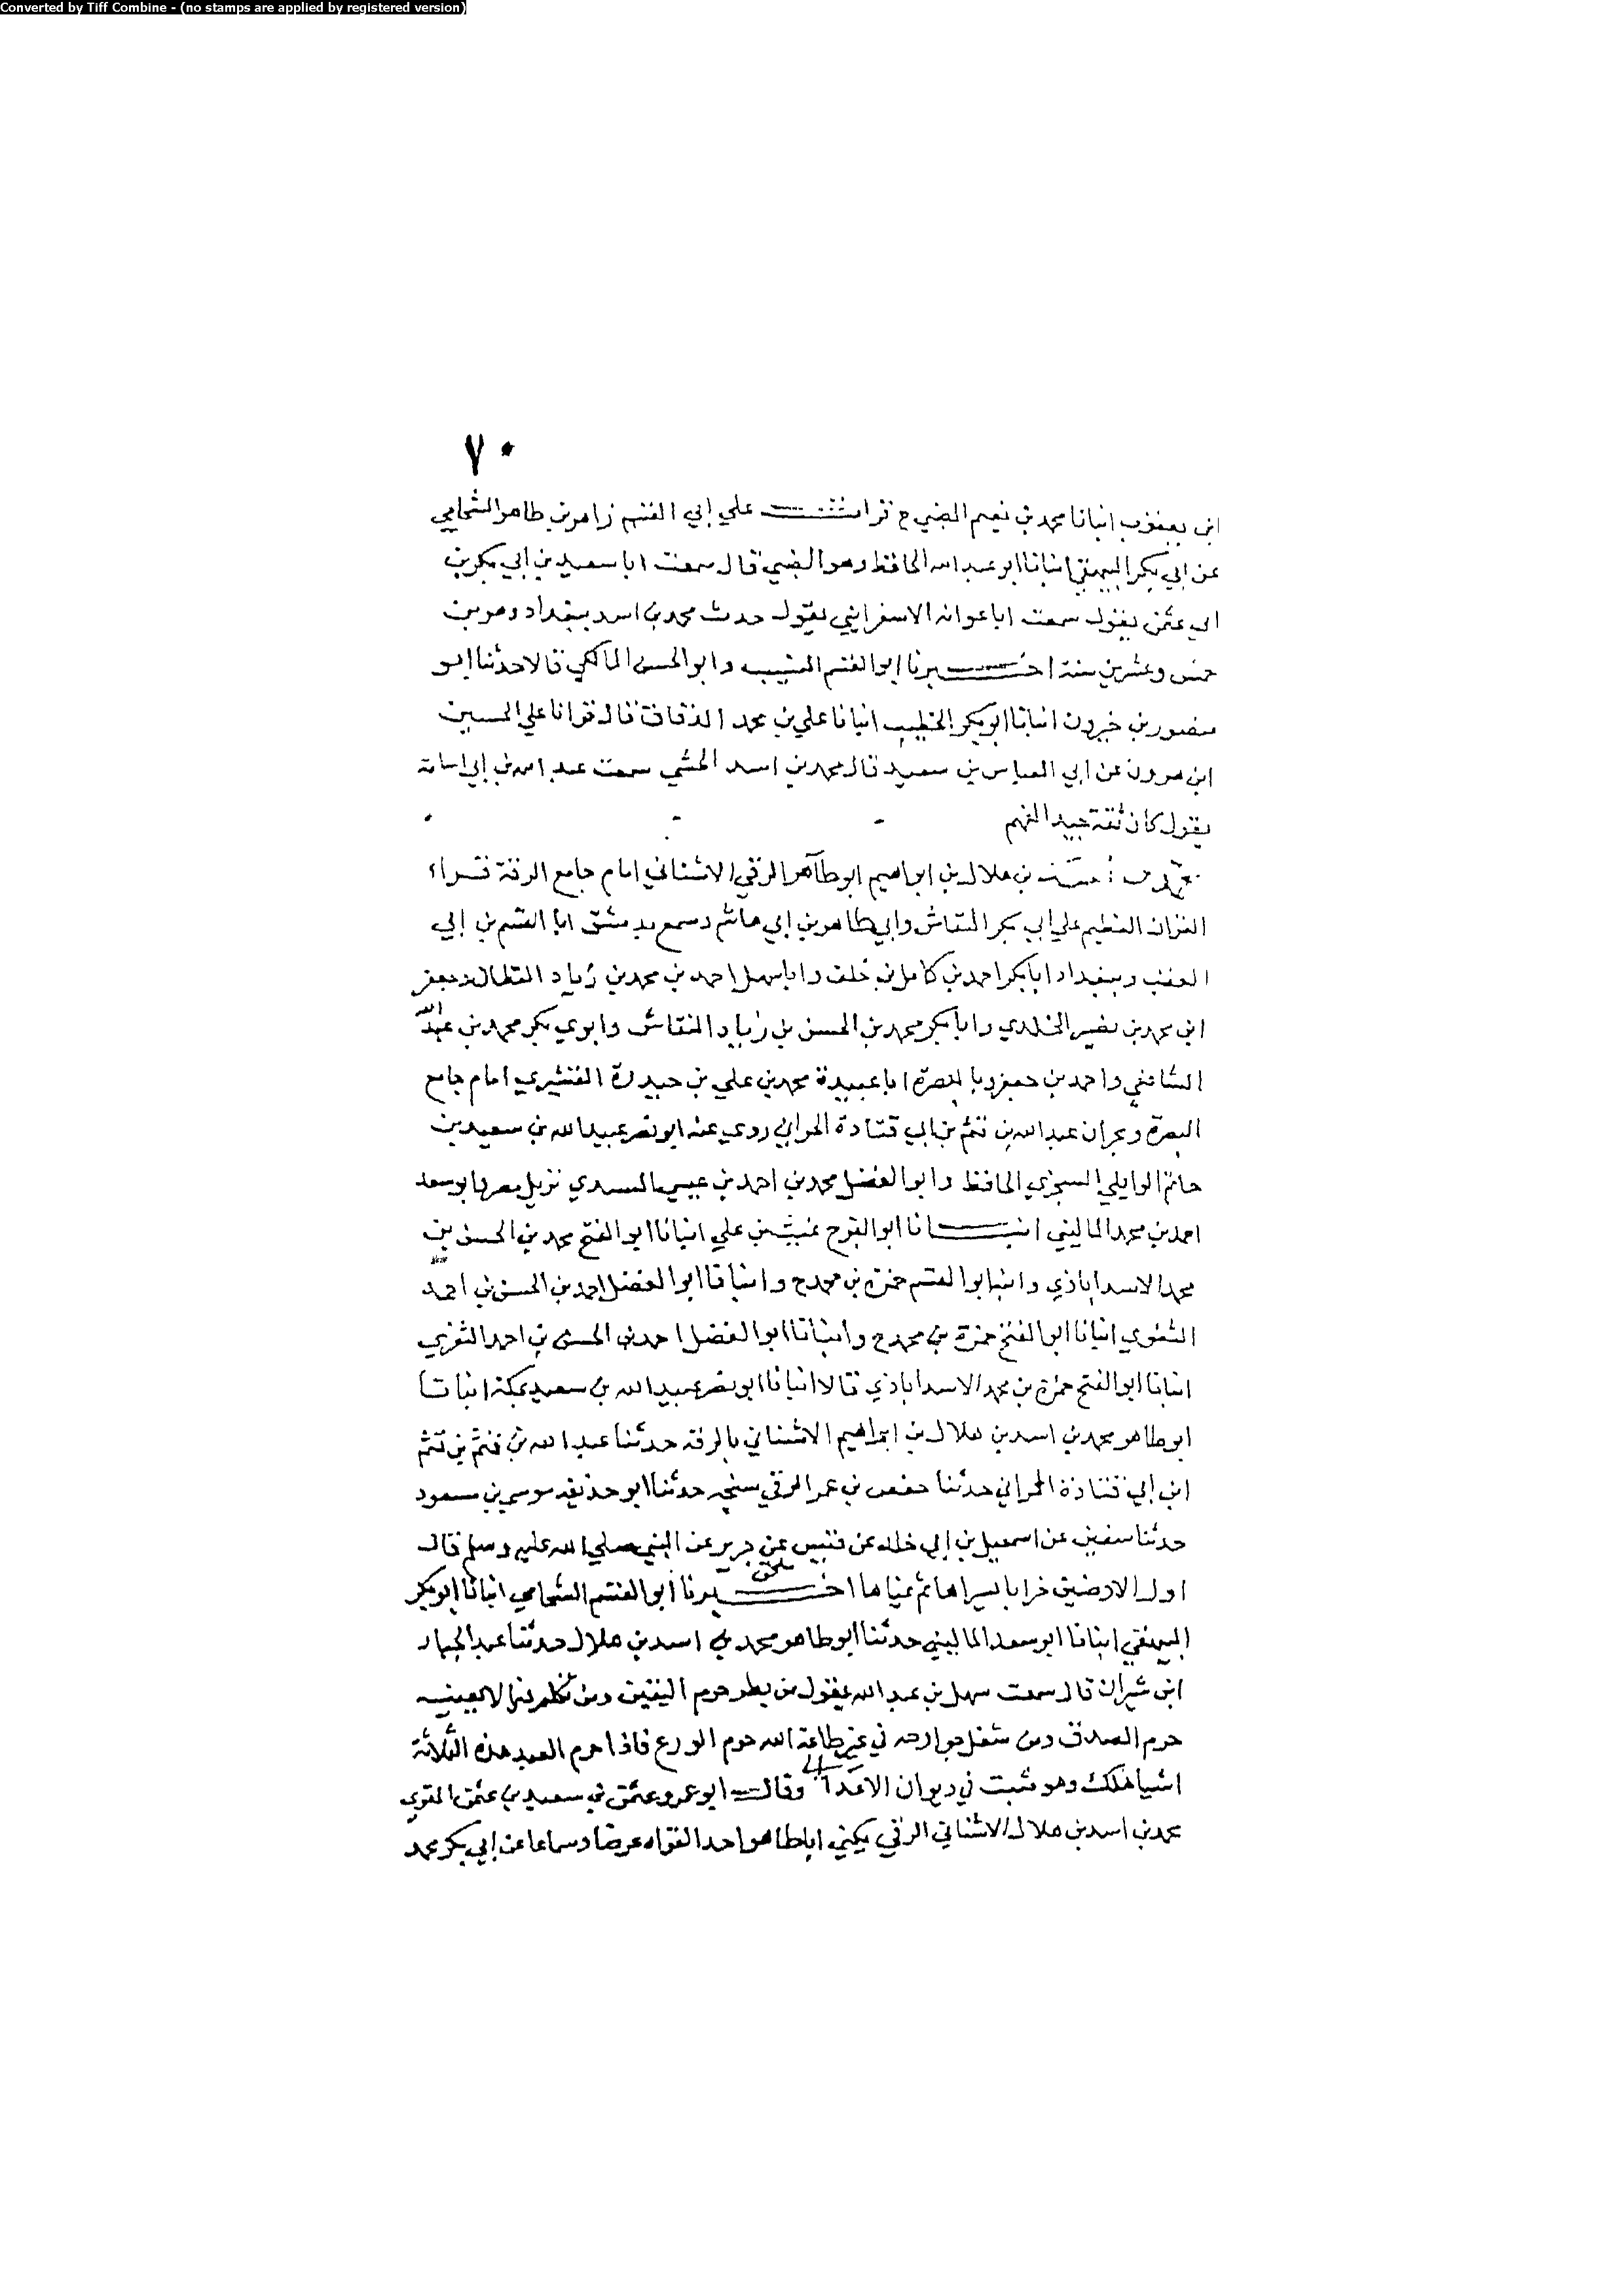 Converted by Tiff Combine - (no stamps are applied by registered version)
٧٠
ابن يعقوب انبانا محمد بن نعيم الضبي ح قرات علي ابي القسم زاهر بن طاهر الشحامي
عن ابي بكر البيهقي انبانا ابو عبد الله الحافظ وهو الضبي قال سمعت ابا سعيد بن ابي بكر بن
ابي عثمن يقول سمعت ابا عوانه الاسفرايني يقول حدث محمد بن اسد ببغداد وهو بن
خمس وعشرين سنة اخبرنا ابو القسم النسيب وابو الحسن المالكي قالا حدثنا ابو
منصور بن خيرون انبانا ابو بكر الخطيب انبانا علي بن محمد الدقاق قال قرانا علي الحسين
ابن هرون عن ابي العباس بن سعيد قال محمد بن اسد الخشي سمعت عبد الله بن ابي اسامة
يقول كان ثقة جيد الفهم
محمد بن اسد بن هلال بن ابراهيم ابو طاهر الرقي الاشناني امام جامع الرقة قرا
القران العظيم علي ابي بكر النقاش وابي طاهر بن ابي هاشم وسمع بدمشق ابا القسم بن ابي
العقب وببغداد ابا بكر احمد بن كامل بن خلف وابا سهل احمد بن محمد بن زياد القطان وجعفر
ابن محمد بن نصير الخلدي وابا بكر محمد بن الحسن بن زياد النقاش وابوي بكر محمد بن عبد الله
الشافعي واحمد بن جعفر وبالبصرة ابا عبيدة محمد بن علي بن حيدرة القشيري امام جامع
البصرة وبحران عبد الله بن قثم بن ابي قتادة الحراني روي عنه ابو نصر عبيد الله بن سعيد بن
حاتم الوايلي السجزي الحافظ وابو الفضل محمد بن احمد بن عيسي السعدي نزيل مصر وابو سعد
احمد بن محمد الماليني انبانا ابو الفرج غيث بن علي انبانا ابو الفتح محمد بن الحسن بن
محمد الاسداباذي وانبا ابو القسم حمزة بن محمد ح وانبانا ابو الفضل احمد بن الحسن بن احمد
انبانا ابو الفتح حمزة بن محمد ح وانبانا ابو الفضل احمد بن الحسن بن احمد
انبانا ابو الفتح حمزة بن محمد الاسداباذي قالا انبانا ابو نصر عبيد الله بن سعيد بمكة انبانا
ابو طاهر محمد بن اسد بن هلال بن ابراهيم الاشناني بالرقه حدثنا عبد الله بن قثم بن قثم
ابن ابي قتادة الحراني حدثنا حفص بن عمر الرقي سنجه حدثنا ابو حذيفه موسي بن مسعود
حدثنا سفين عن اسمعيل بن ابي خالد عن قيس عن جرير عن النبي صلي الله عليه وسلم قال
اول الارضين خرابا يسراها ثم يمناها اخبرنا ابو القسم الشحامي انبانا ابو بكر
ملحق
البيهقي انبانا ابو سعد الماليني حدثنا ابو طاهر محمد بن اسد بن هلال حدثنا عبد الجبار
ابن شيران قال سمعت سهل بن عبد الله يقول من يظن حرم اليقين ومن تكلم فيما لا يعينه
حرم الصدق ومن شغل جوارحه في غير طاعة الله حرم الورع فاذا حرم العبد هذه الثلاثة
اشيا هلك وهو مثبت في ديوان الاعدا الي وقال ابو عمرو عثمن بن سعيد بن عثمن المقري
محمد بن اسد بن هلال الاشناني الرقي يكني ابا طاهر اخذ القراه عرضا وسماعا عن ابي بكر محمد